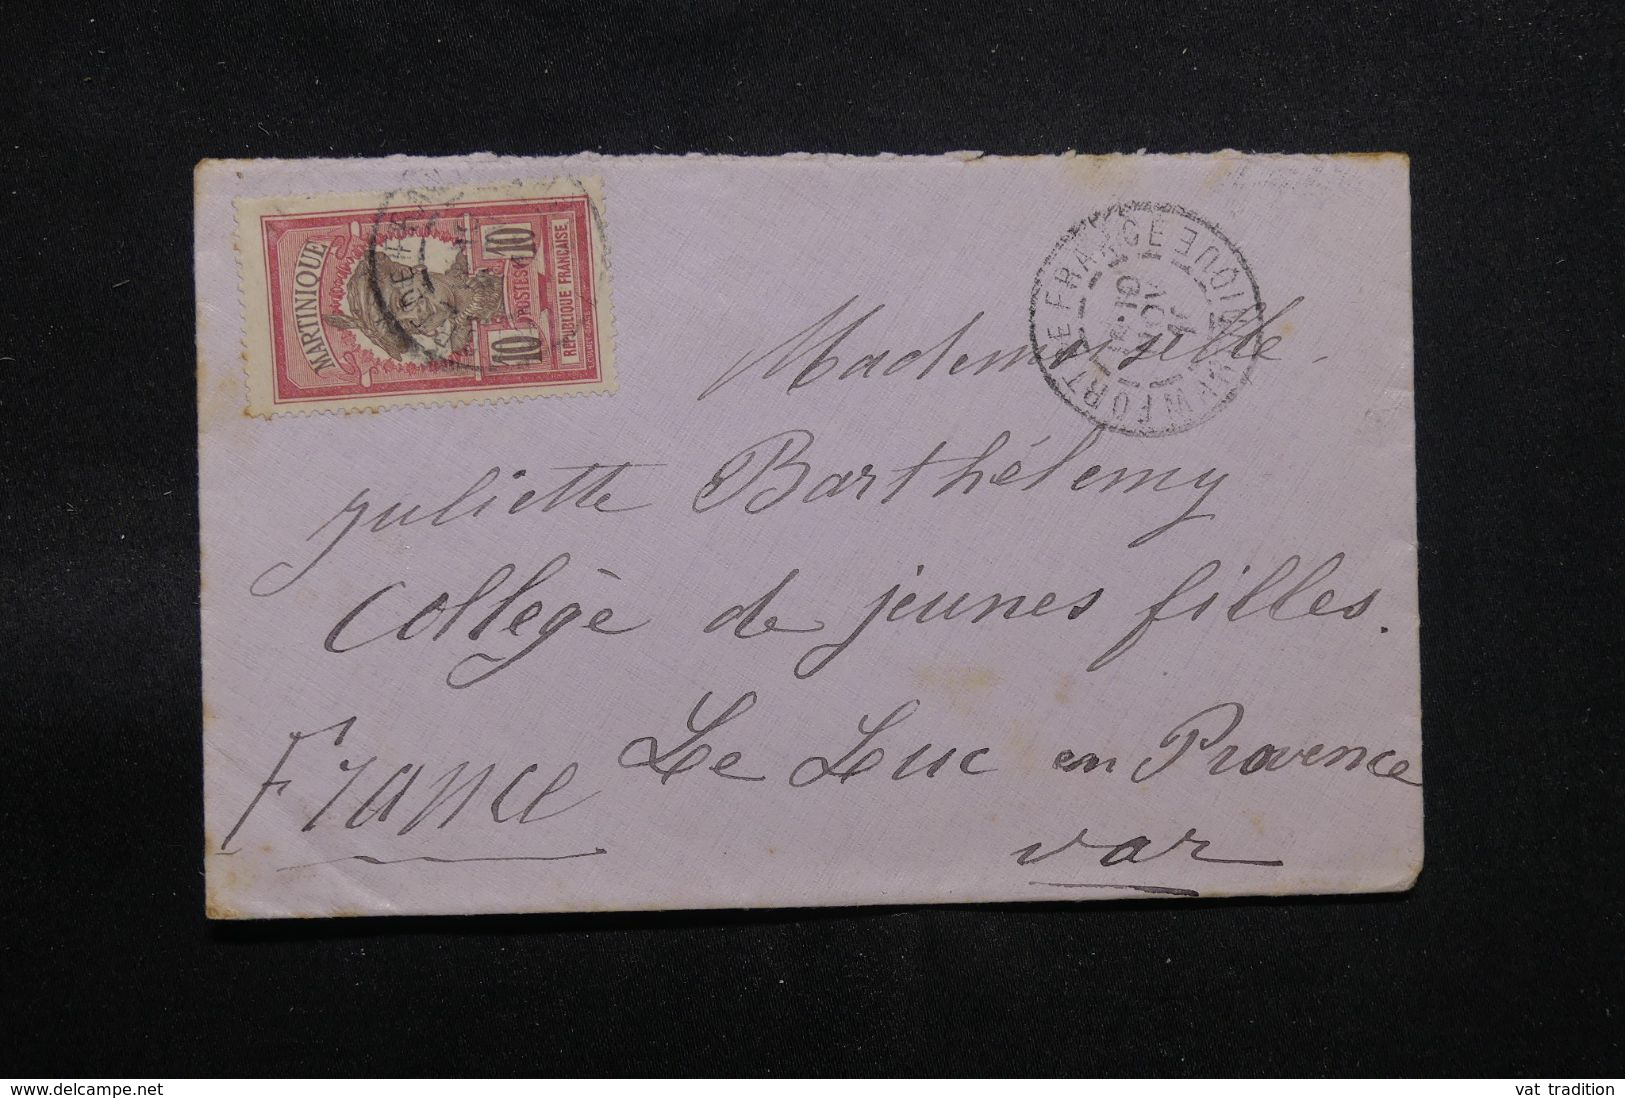 MARTINIQUE
10
10
POSTES
REPUBLIQUE FRANÇAISE
FORT DE FRANCE
MARTINIQUE
Mademoiselle
Juliette Barthélemy
Collège de jeunes filles.
Le Luc en Provence
Var
France
delcampe.net
vat_tradition